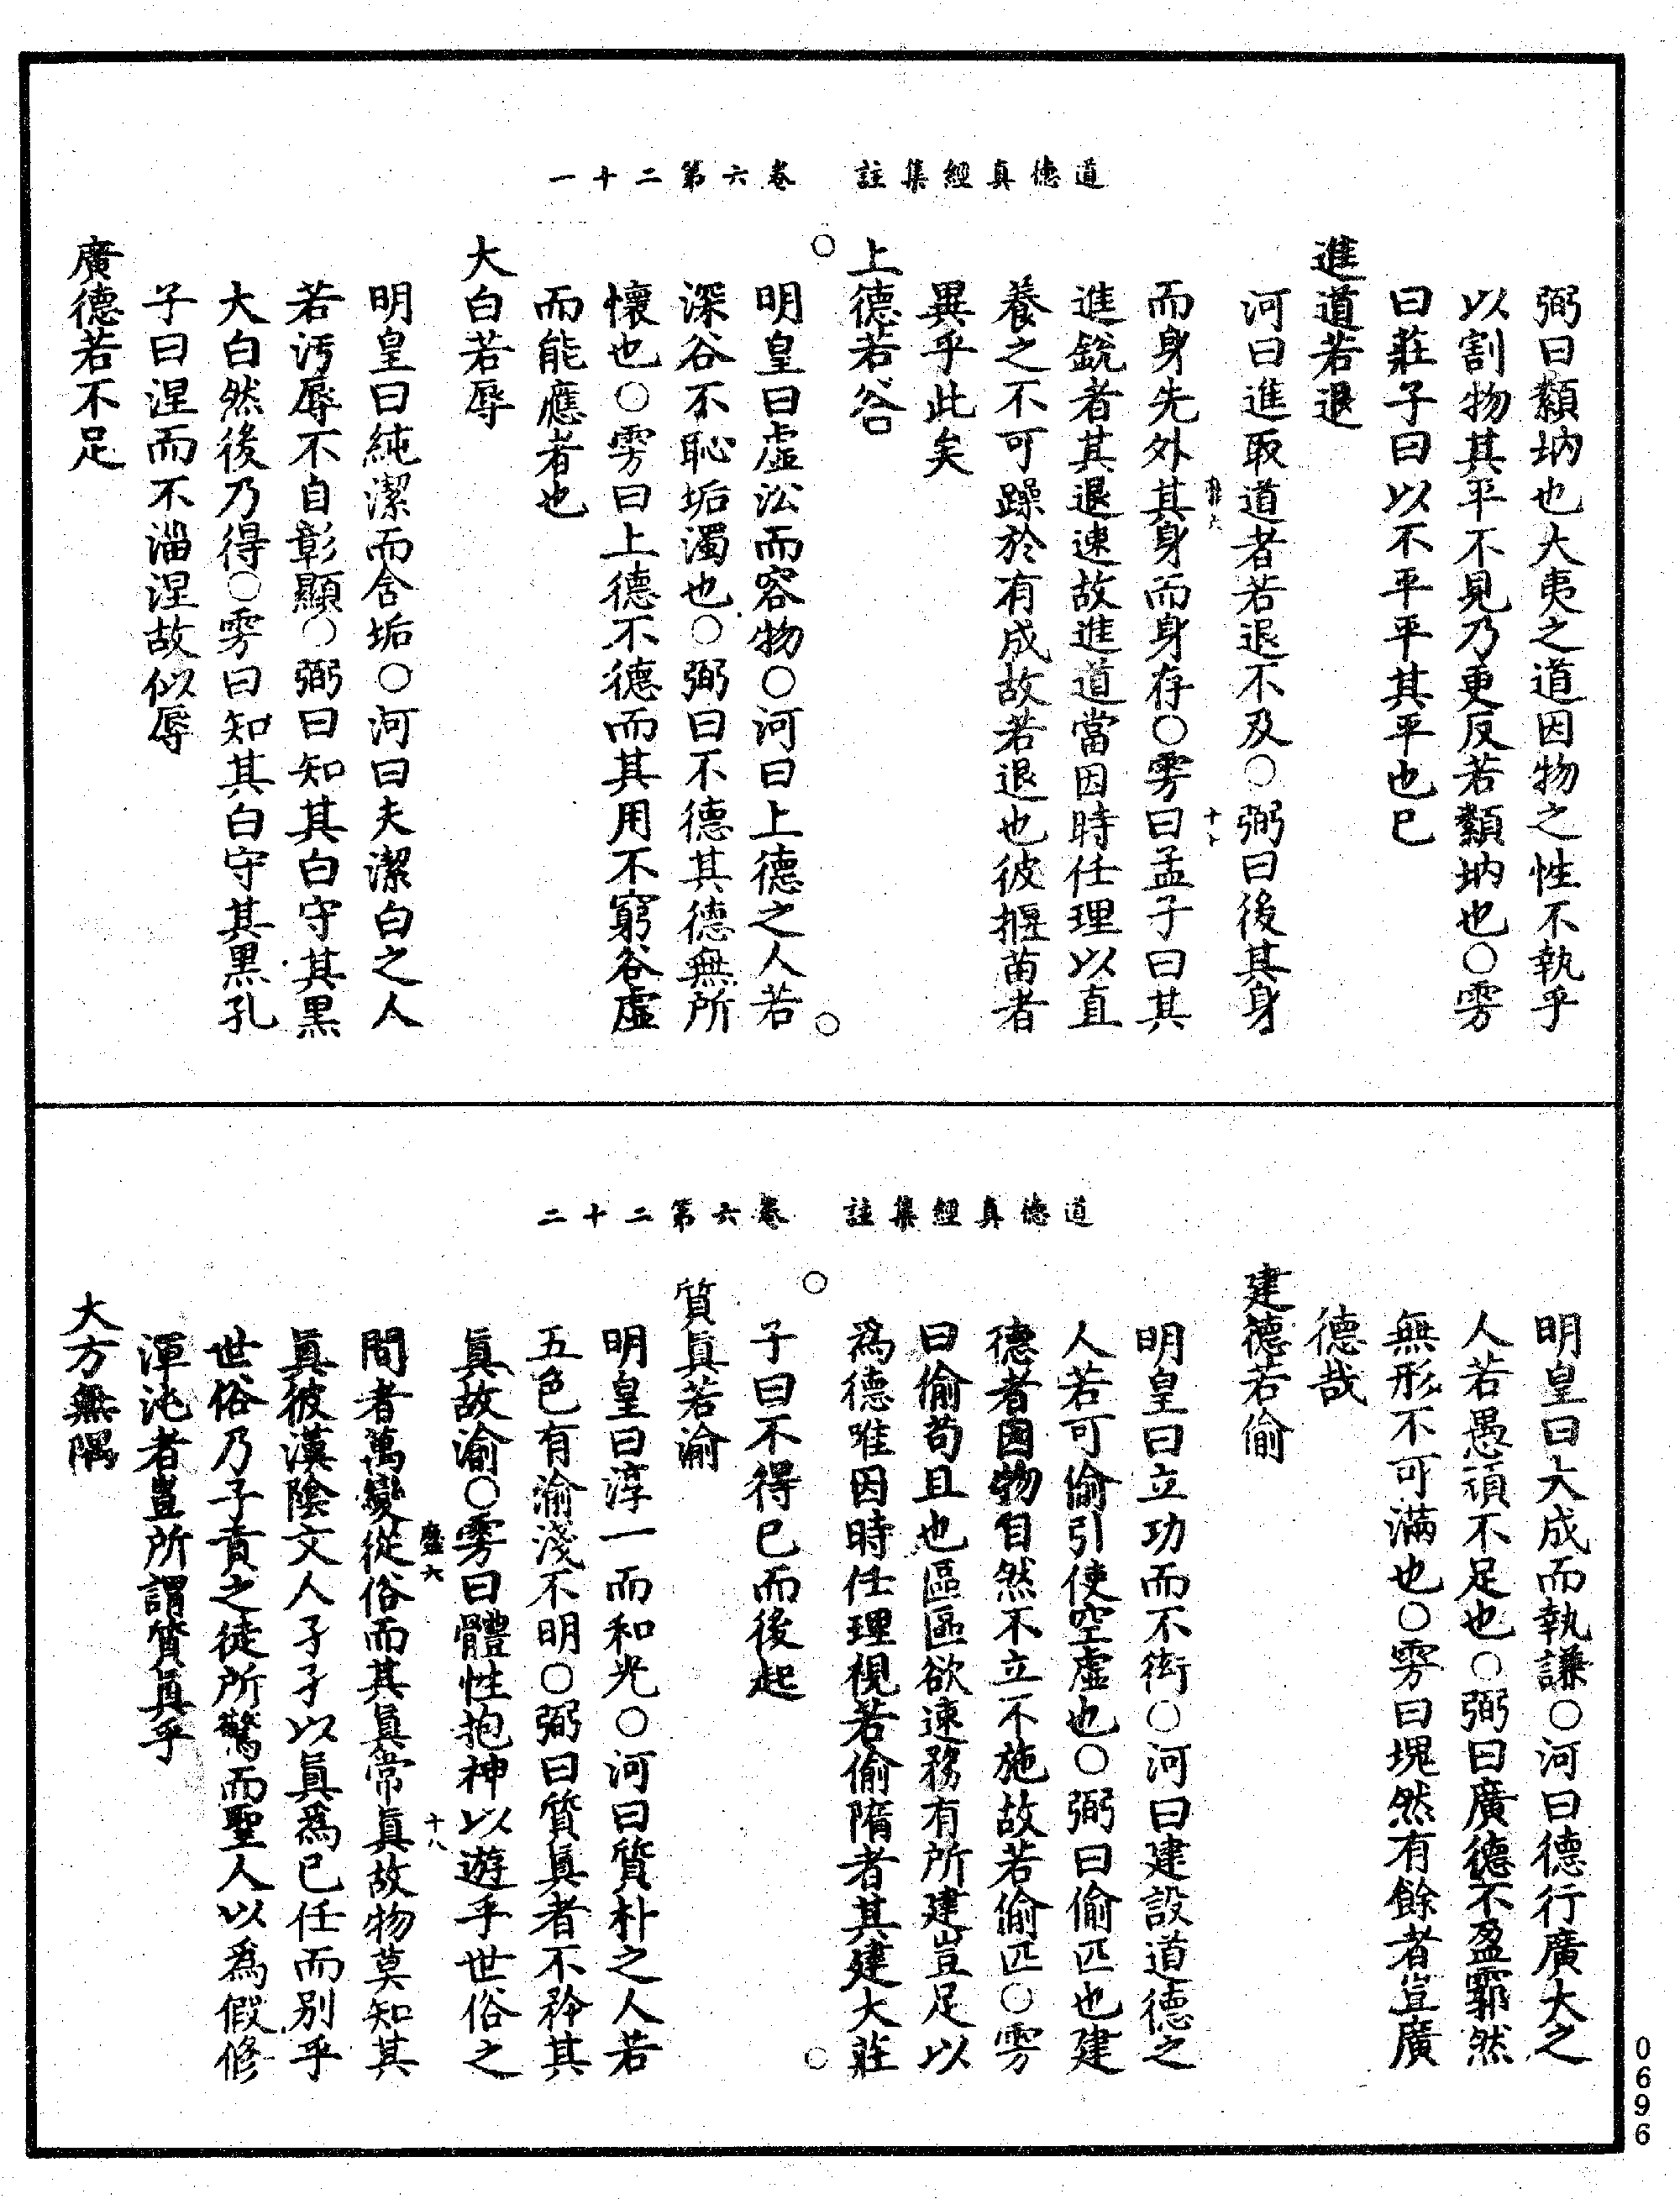 道德真經集註　卷六第二十一
弼曰纇㘨也大夷之道因物之性不執乎
以割物其平不見乃更反若纇㘨也○雱
曰莊子曰以不平平其平也已
進道若退
河曰進取道者若退不及○弼曰後其身
而身先外其身而身存○雱曰孟子曰其
進銳者其退速故進道當因時任理以直
養之不可躁於有成故若退也彼揠苗者
異乎此矣
上德若谷
明皇曰虛㳂而容物○河曰上德之人若
深谷不恥垢濁也○弼曰不德其德無所
懷也○雱曰上德不德而其用不窮谷虛
而能應者也
大白若辱
明皇曰純潔而含垢○河曰夫潔白之人
若汚辱不自彰顯○弼曰知其白守其黑
大白然後乃得○雱曰知其白守其黑孔
子曰涅而不淄涅故似辱
廣德若不足
道德真經集註　卷六第二十二
明皇曰大成而執謙○河曰德行廣大之
人若愚頑不足也○弼曰廣德不盈霩然
無形不可滿也○雱曰塊然有餘者豈廣
德哉
建德若偷
明皇曰立功而不衒○河曰建設道德之
人若可偷引使空虛也○弼曰偷匹也建
德者因物自然不立不施故若偷匹○雱
曰偷苟且也區區欲速務有所建豈足以
爲德唯因時任理視若偷隋者其建大莊
子曰不得已而後起
質眞若渝
明皇曰淳一而和光○河曰質朴之人若
五色有渝淺不明○弼曰質眞者不矜其
眞故渝○雱曰體性抱神以遊乎世俗之
間者萬變從俗而其眞常眞故物莫知其
眞彼漢陰文人孑孑以眞爲已任而別乎
世俗乃子貢之徒所驚而聖人以爲假修
渾沌者豈所謂質眞乎
大方無隅
十八
0696